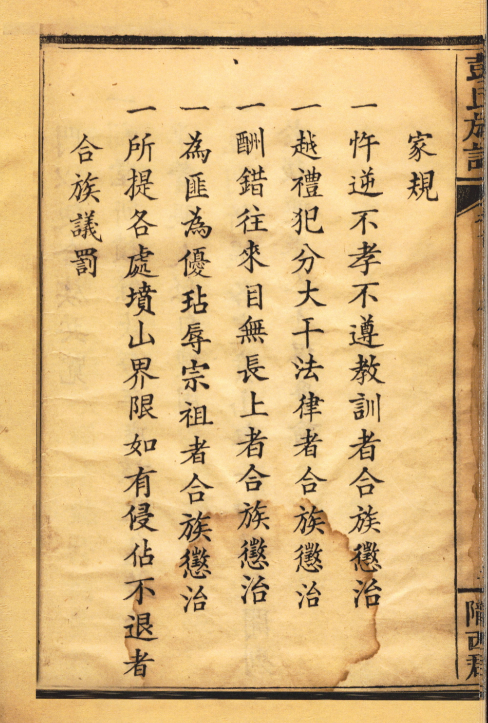 彭氏族譜
隴西郡
家規
一忤逆不孝不遵教訓者合族懲治
一越禮犯分大干法律者合族懲治
一酬錯往來目無長上者合族懲治
一為匪為優玷辱宗祖者合族懲治
一所提各處墳山界限如有侵佔不退者
合族議罰